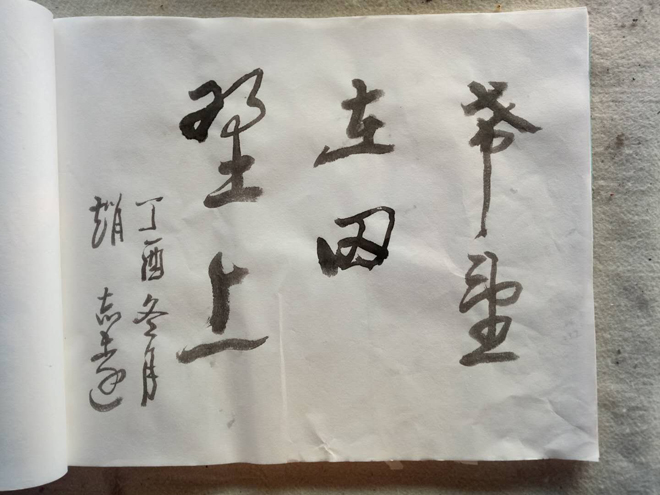 希望
在田
野上
丁酉冬月
趙志遠